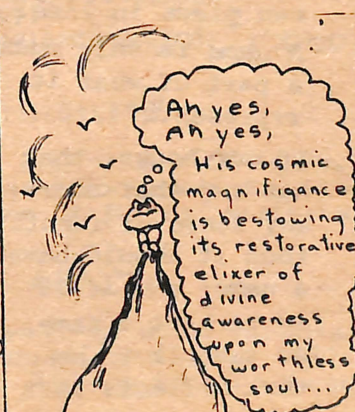 Ah yes,
Ah yes,
His cosmic
magnifigance
is bestowing
its restorative
elixer of
divine
awareness
upon my
worthless
soul...